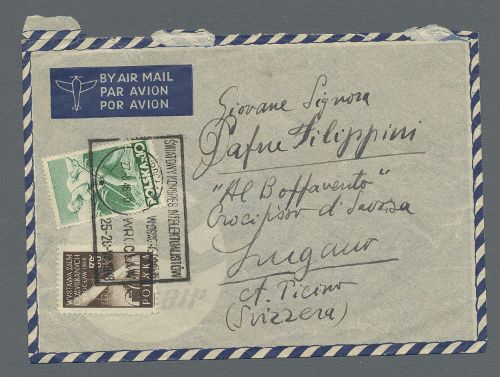 BY AIR MAIL
PAR AVION
POR AVION
Giovane Signora
Dafne Filippini
"Al Boffavento"
Crocifisso di Savosa
Lugano
Ct. Ticino
(Svizzera)
ŚWIATOWY KONGRES INTELEKTUALISTÓW
WROCŁAW
25-28
WYSTAWA ZIEM
ODZYSKANYCH
POLSKA
air